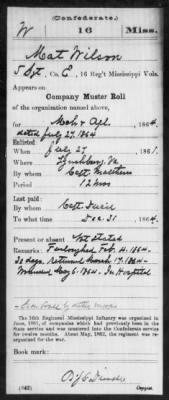 (Confederate.)
W 16 Miss.
Mat Wilson
Sgt, Co. C, 16 Reg't Mississippi Vols.
Appears on
Company Muster Roll
of the organization named above,
for Mch & Apl, 1864.
dated July 27, 1864
Enlisted:
When July 27, 1861.
Where Lynchburg, Va
By whom Capt Matthews
Period 12 mos
Last paid:
By whom Capt
To what time Dec 31, 186
Present or absent Not Stated
Remarks: Furloughed Feb. 14, 1864
30 days, returned March 17, 1864
Wounded May 6, 1864. In Hospital
The 16th Regiment Mississippi Infantry was organized in
June, 1861, of companies which had previously been in the
State service and was mustered into the Confederate service
for twelve months. About May, 1862, the regiment was
re-organized.
Book mark:
(642)
Copyist.